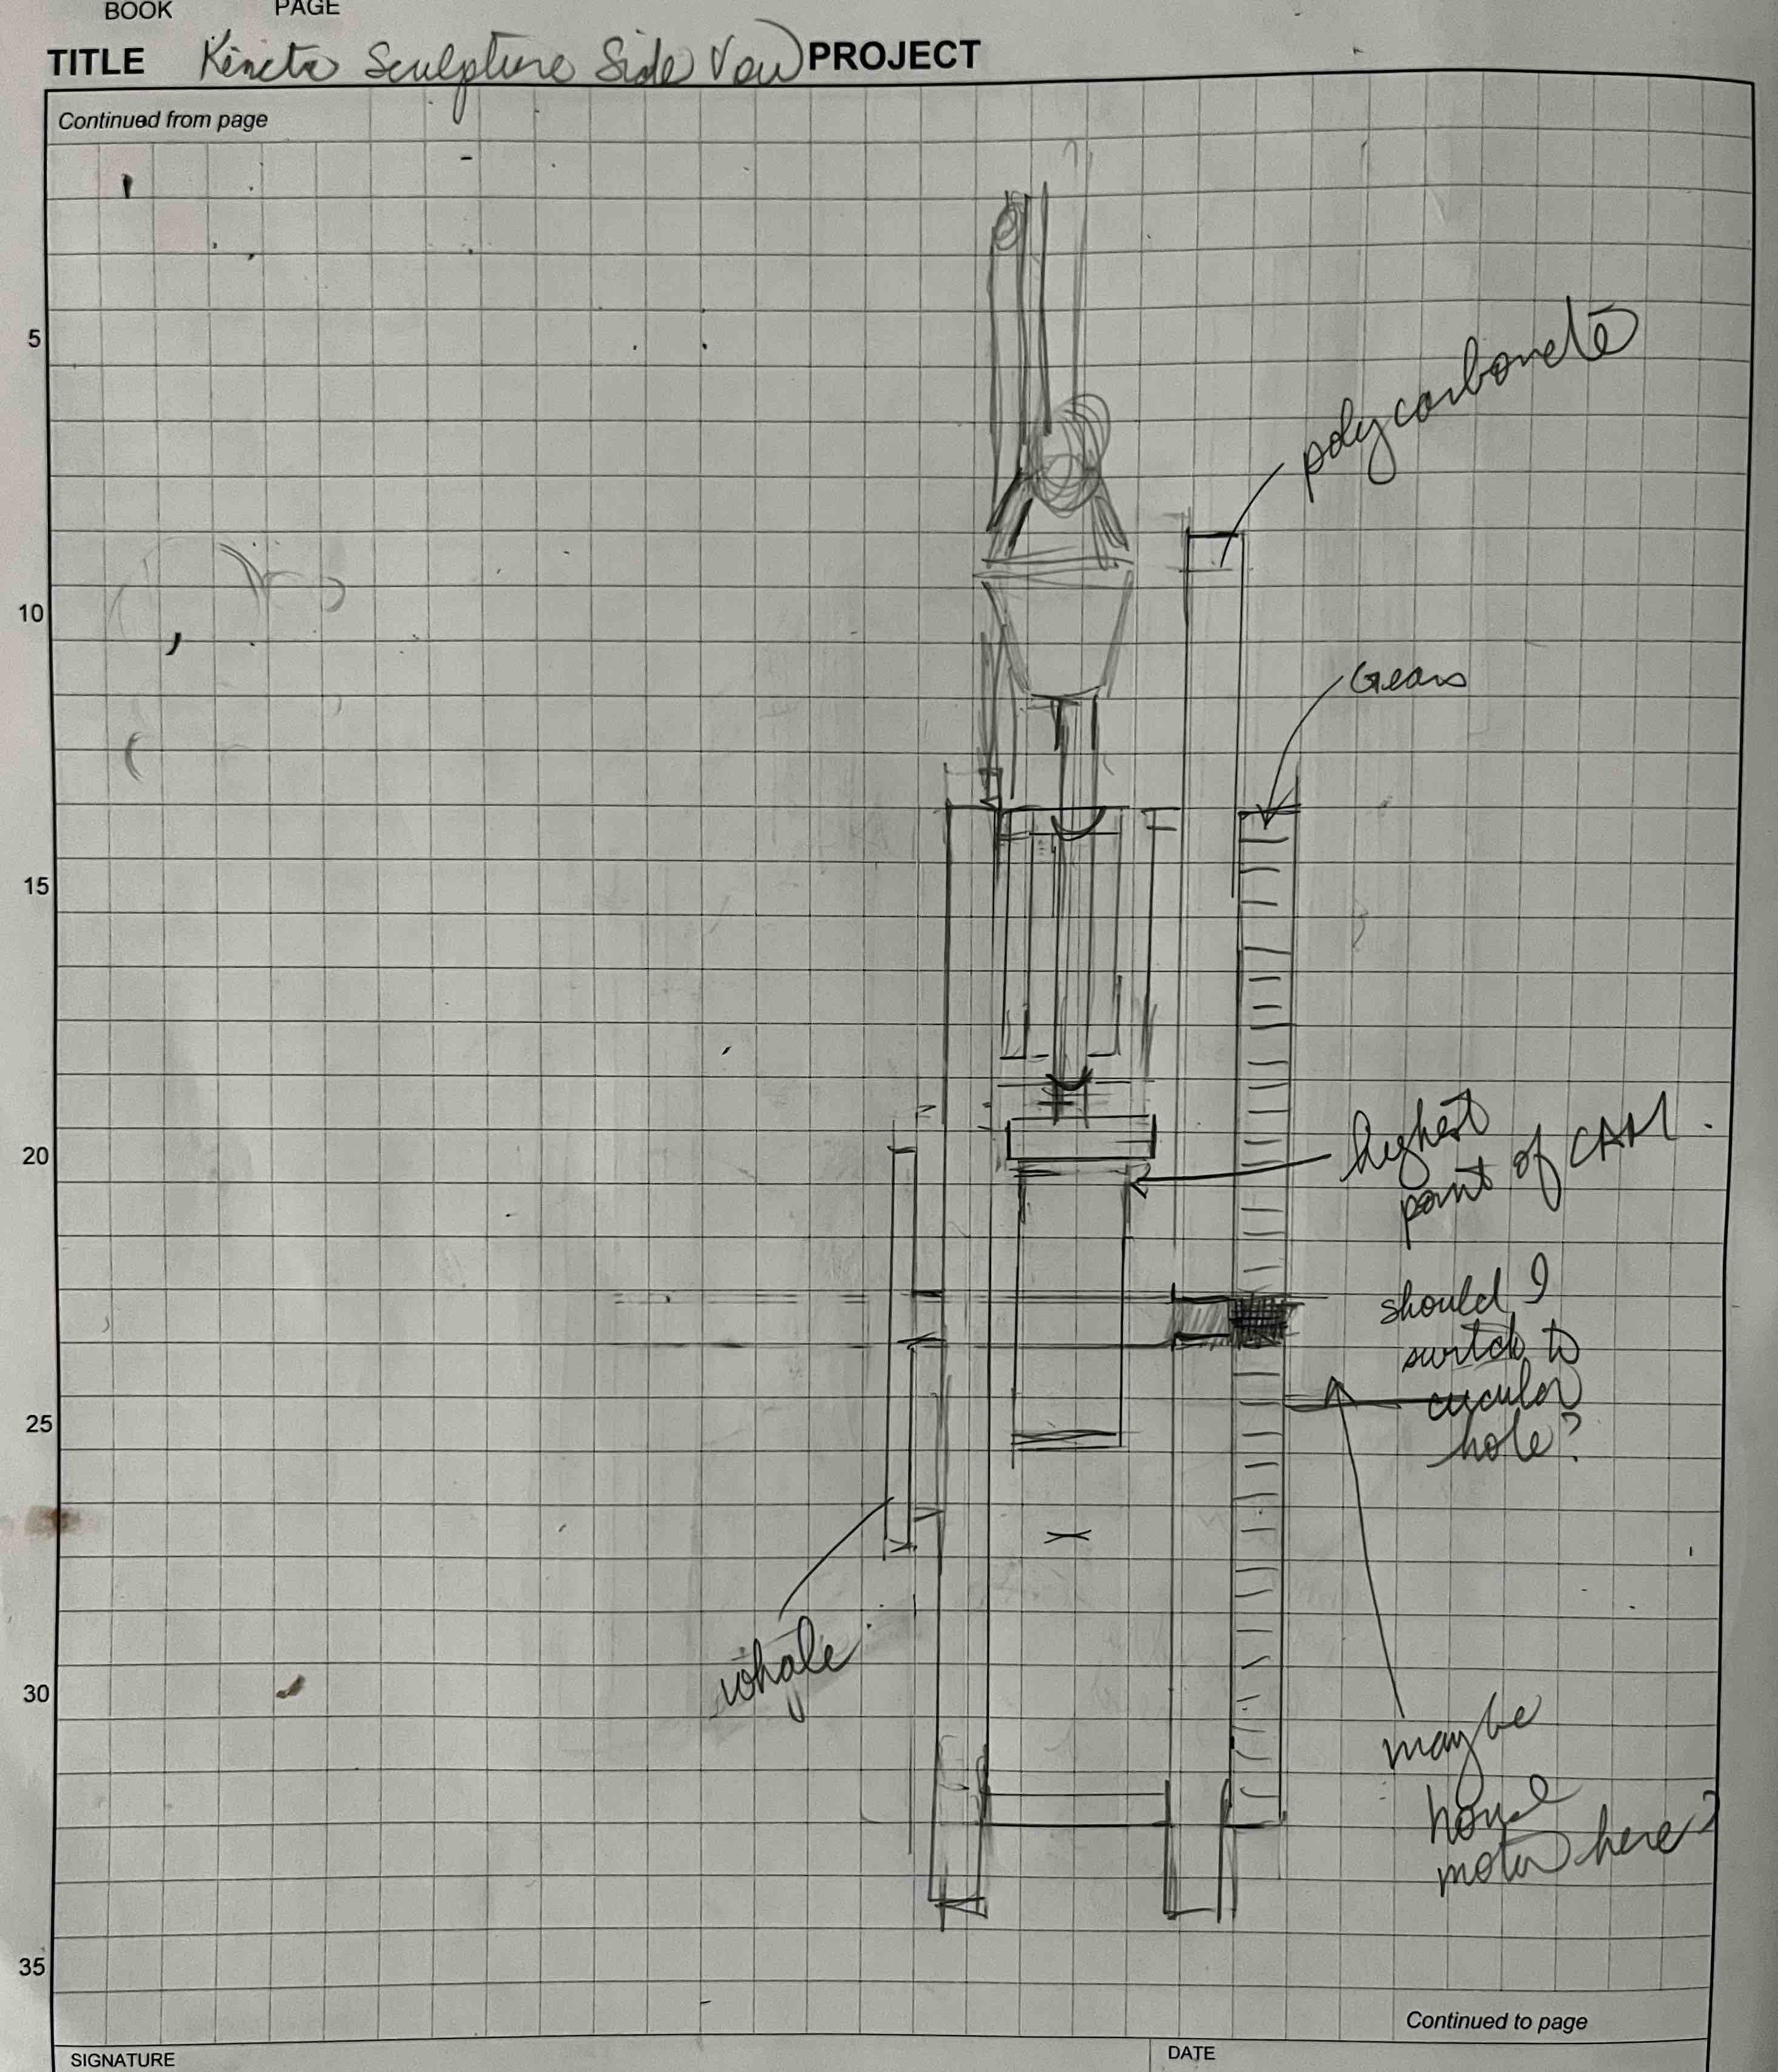 BOOK PAGE
TITLE Kinetic Sculpture Side View PROJECT
Continued from page
5
polycarbonate
10
Gears
15
highest
20
point of CAM.
should I
switch to
circular
25
hole?
whale
30
maybe
house
motor here?
35
Continued to page
SIGNATURE DATE